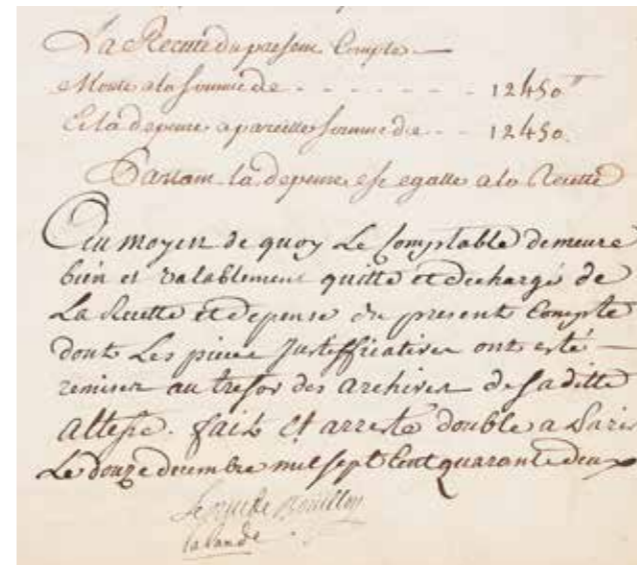 La Recette du present Compte
Monte a la somme de - - - - - - - 12450ᵗᵗ
Et la depense a pareille somme de - - 12450.
Partant la depense est egalle a la Recette
Au moyen de quoy Le Comptable demeure
bien et valablement quitte et decharge de
La Recette et depense du present Compte
dont Les pieces Justifficatives ont esté —
remises au tresor des archives de saditte
altesse. fait et arresté double a Paris
Le douze decembre mil sept Cent quarante deux
Le duc de Bouillon
lalande